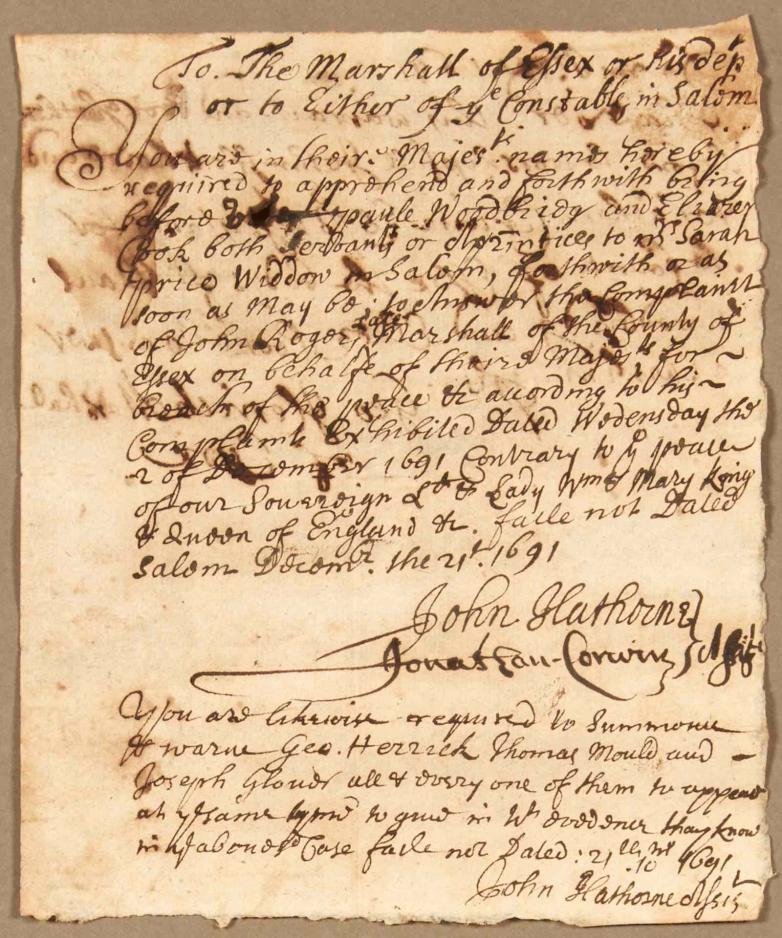 To. The Marshall of Essex or his dep
or to Either of ye Constables in Salem
You are in their Majests. names hereby
required to apprehend and forthwith bring
before paule Woodbridg and Eliezer
Cook both Servants or Aprintices to mrs Sarah
price Widdow in Salem, forthwith or as
soon as May be to Answer the Complaint
of John Rogers Marshall of the County of
Essex on behalfe of theire Majests for ~
breach of the peace & acording to his ~
Complaint Exhibited Dated Wedensday the
2 of December 1691 Contrary to ye peace
of our Sovereign Lady Wm & Mary King
& Queen of England &c. faile not Dated
Salem Decemr. the 21t. 1691
John Hathorne
Jonathan Corwin
You are likewise required to Summons
& warne Geo. Herrick Thomas Mould and -
Joseph Glover all & every one of them to appear
at ye same tyme to give in wt evedence they know
in ye aboves'd Case faile not Dated: 21 10 1691
John Hathorne Assist